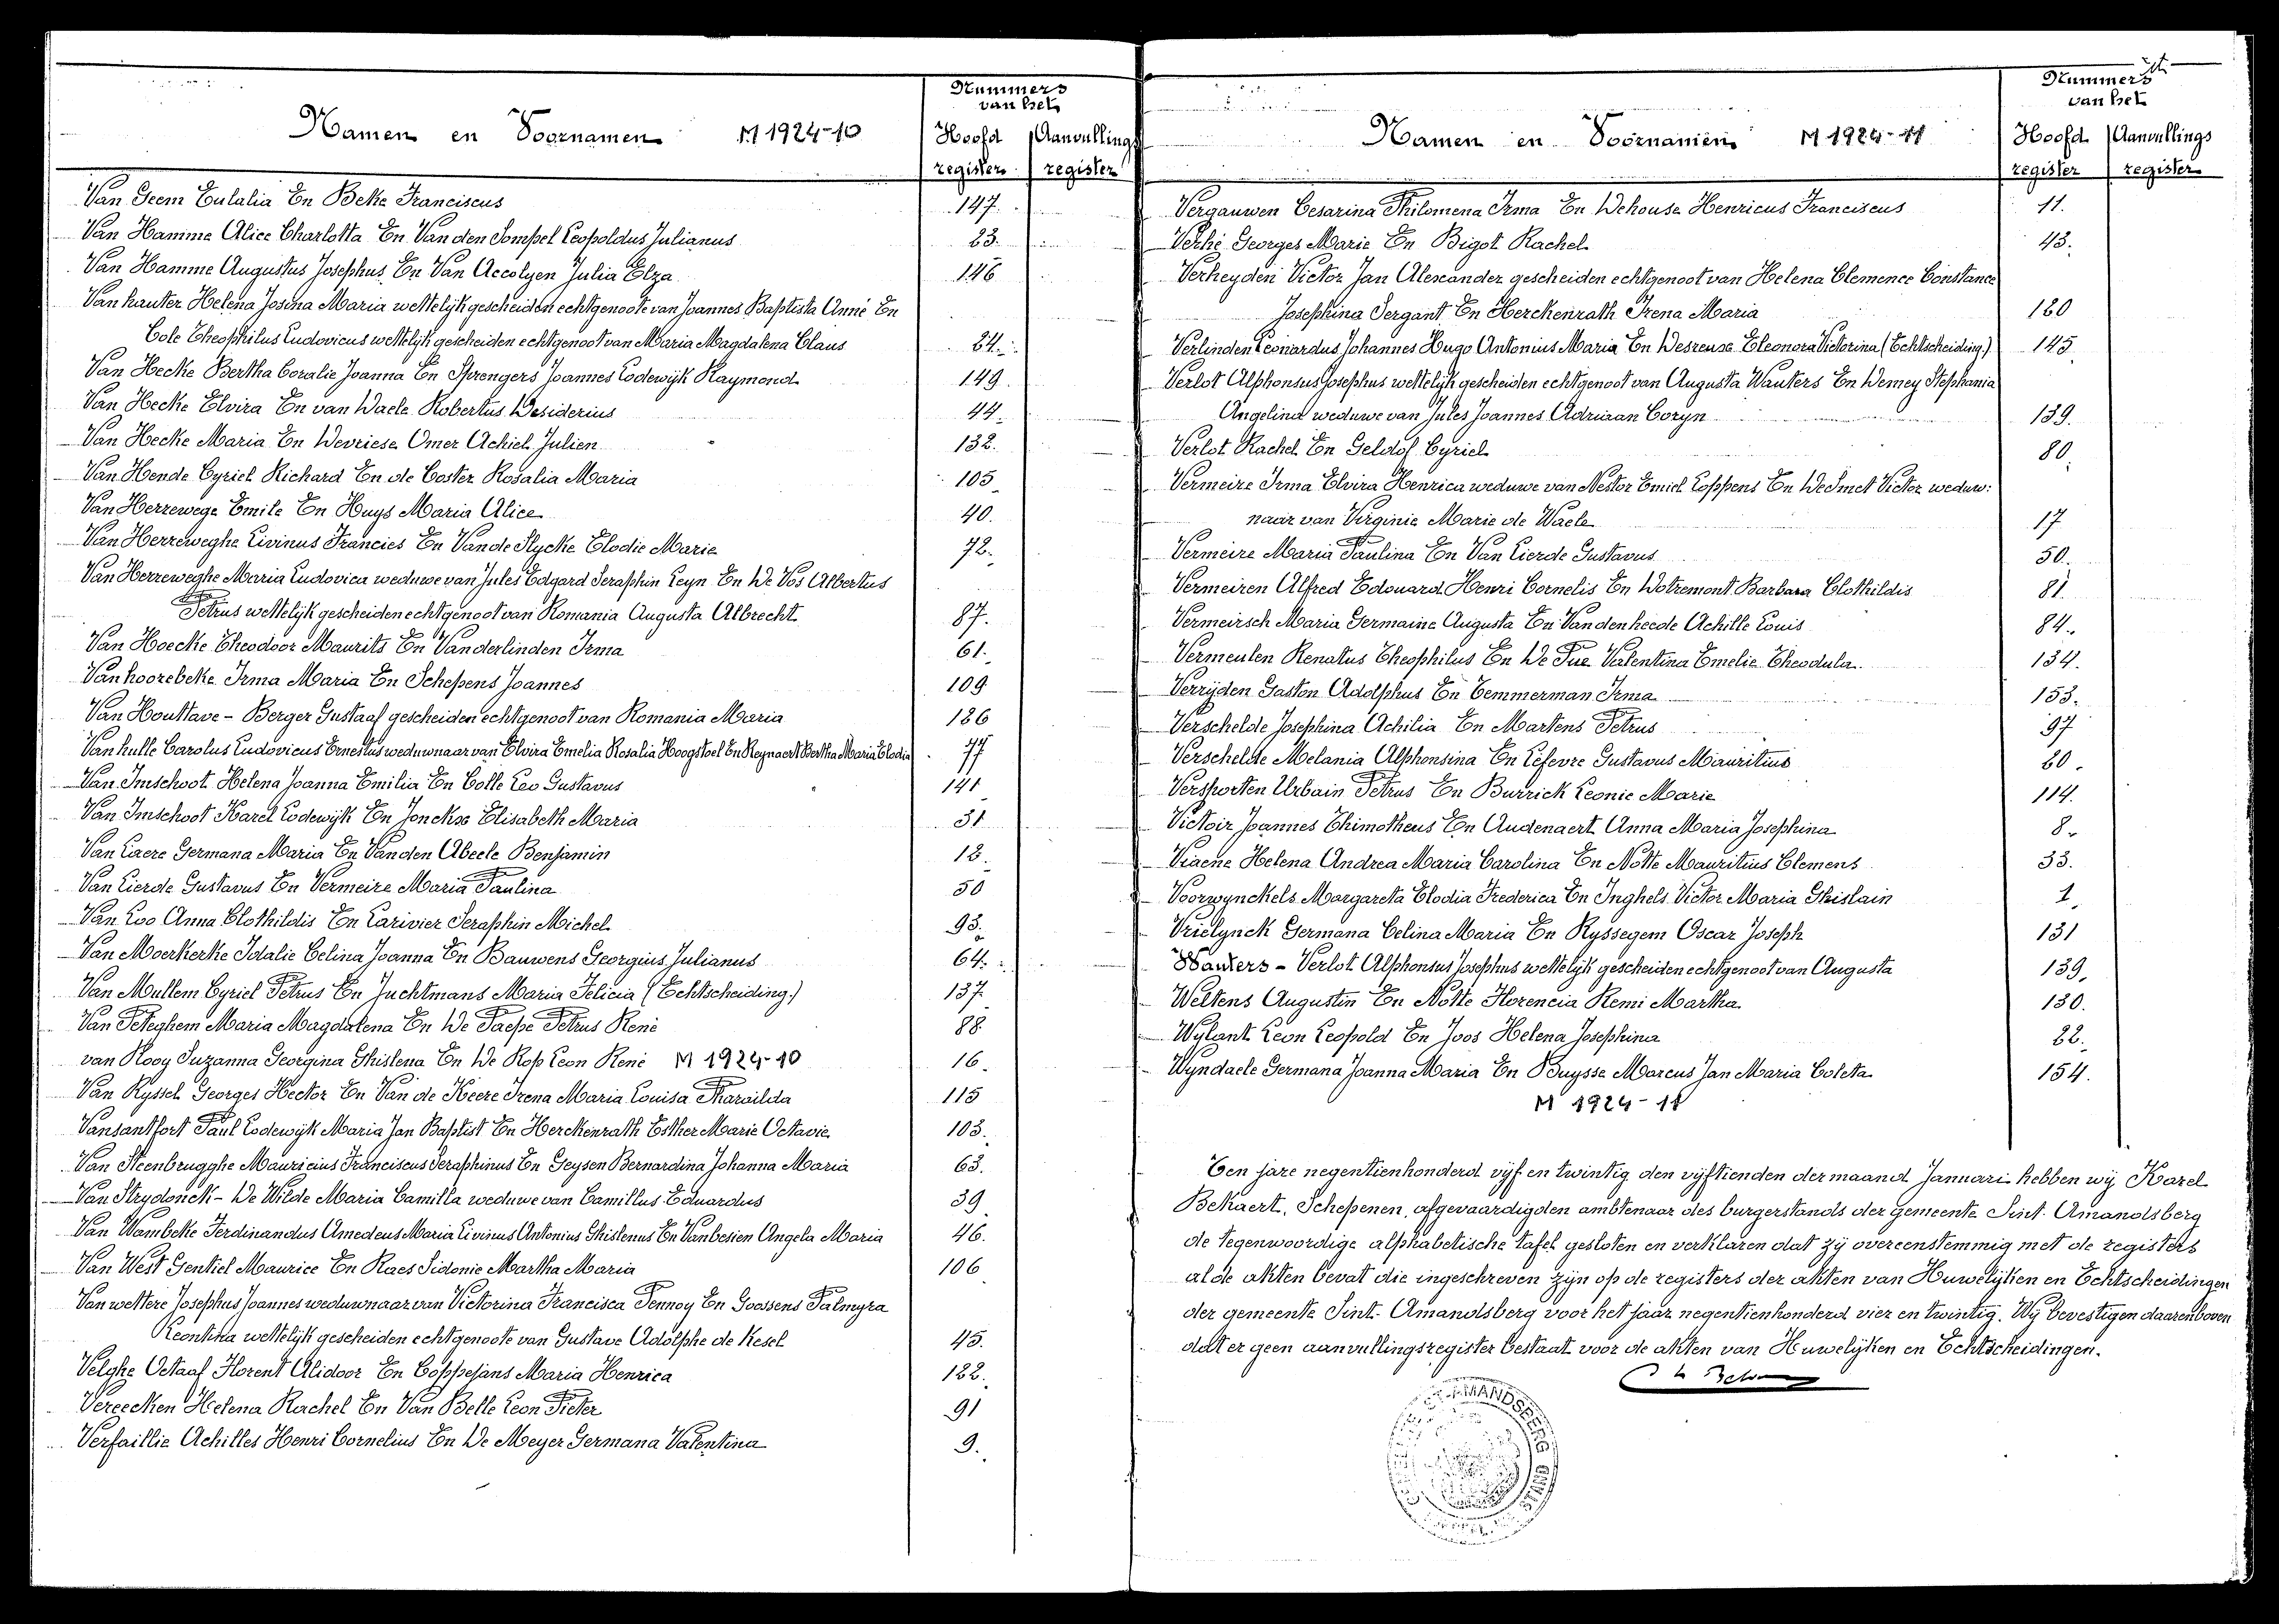 Nummers
van het
Namen en Voornamen M 1924-10 Hoofd Aanvullings
register register
Van Geem Eulalia En Beke Franciscus 147.
Van Hamme Alice Charlotta En Van den Sompel Leopoldus Julianus 23.
Van Hamme Augustus Josephus En Van Accolyen Julia Elza 146
Van hauter Helena Josina Maria wettelijk gescheiden echtgenoote van Joannes Baptista Anné En
Cole Theophilus Ludovicus wettelijk gescheiden echtgenoot van Maria Magdalena Claus 24.
Van Hecke Bertha Coralie Joanna En Sprengers Joannes Lodewijk Raymond 149.
Van Hecke Elvira En van Daele Robertus Desiderius 44.
Van Hecke Maria En Devriese Omer Achiel Julien 132.
Van Hende Cyriel Richard En de Coster Rosalia Maria 105
Van Herrewege Emile En Huys Maria Alice 40.
Van Herreweghe Livinus Francies En Van de Slycke Elodie Marie 72.
Van Herreweghe Maria Ludovica weduwe van Jules Edgard Seraphin Leyn En De Vos Albertus
Petrus wettelijk gescheiden echtgenoot van Romania Augusta Albrecht 87.
Van Hoecke Theodoor Maurits En Vanderlinden Irma 61.
Van hoorebeke Irma Maria En Schepens Joannes 109
Van Houttave - Berger Gustaaf gescheiden echtgenoot van Romania Maria 126
Van hulle Carolus Ludovicus Ernestus weduwnaar van Elvira Emelia Rosalia Hoogstoel En Reynaert Bertha Maria Elodia 77
Van Imschoot Helena Joanna Emilia En Colle Leo Gustavus 141
Van Imschoot Karel Lodewijk En Jonckxe Elisabeth Maria 31
Van Laere Germana Maria En Vanden Abeele Benjamin 12.
Van Lierde Gustavus En Vermeire Maria Paulina 50
Van Loo Anna Clothildis En Larivier Seraphin Michel 93.
Van Moerkerke Idalie Celina Joanna En Bauwens Georgius Julianus 64.
Van Mullem Cyriel Petrus En Juchtmans Maria Felicia (Echtscheiding.) 137
Van Peteghem Maria Magdalena En De Paepe Petrus René 88
van Rooy Suzanna Georgina Ghislena En De Rop Leon René M 1924-10 16.
Van Ryssel Georges Hector En Van de Keere Irena Maria Louisa Pharaïlda 115
Vansantfort Paul Lodewijk Maria Jan Baptist En Herckenrath Esther Marie Octavie 103.
Van Steenbrugghe Mauricius Franciscus Seraphinus En Geysen Bernardina Johanna Maria 63.
Van Strydonck - De Wilde Maria Camilla weduwe van Camillus Eduardus 39
Van Wambeke Ferdinandus Amedeus Maria Livinus Antonius Ghislenus En Vanbesien Angela Maria 46.
Van West Gentiel Maurice En Raes Sidonie Martha Maria 106
Van wettere Josephus Joannes weduwnaar van Victorina Francisca Pennoy En Goossens Palmyra
Leontina wettelijk gescheiden echtgenoote van Gustave Adolphe de Kesel 45.
Velghe Octaaf Florent Alidoor En Coppejans Maria Henrica 122.
Vereecken Helena Rachel En Van Belle Leon Pieter 91
Verfaillie Achilles Henri Cornelius En De Meyer Germana Valentina 9.
Nummers
van het
Namen en Voornamen M 1924-11 Hoofd Aanvullings
register register
Vergauwen Cesarina Philomena Irma En Dehouse Henricus Franciscus 11.
Verhé Georges Marie En Bigot Rachel 43.
Verheyden Victor Jan Alexander gescheiden echtgenoot van Helena Clemence Constance
Josephina Sergant En Herckenrath Irena Maria 120
Verlinden Leonardus Johannes Hugo Antonius Maria En Desreuse Eleonora Victorina (Echtscheiding.) 145
Verlot Alphonsus Josephus wettelijk gescheiden echtgenoot van Augusta Wauters En Demey Stephania
Angelina weduwe van Jules Joannes Adriaan Coryn 139.
Verlot Rachel En Geldof Cyriel 80.
Vermeire Irma Elvira Henrica weduwe van Nestor Emiel Coppens En De Smet Victor weduw:
naar van Virginie Marie de Waele 17
Vermeire Maria Paulina En Van Lierde Gustavus 50.
Vermeiren Alfred Edouard Henri Cornelis En Dotremont Barbara Clothildis 81
Vermeirsch Maria Germaine Augusta En Van den heede Achille Louis 84.
Vermeulen Renatus Theophilus En De Pue Valentina Emelie Theodula 134.
Verrijden Gaston Adolphus En Temmerman Irma 153.
Verschelde Josephina Achilia En Martens Petrus 97
Verschelde Melania Alphonsina En Lefevre Gustavus Mauritius 60.
Versporten Urbain Petrus En Burrick Leonie Marie 114.
Victoir Joannes Thimotheus En Audenaert Anna Maria Josephina 8.
Viaene Helena Andrea Maria Carolina En Notte Mauritius Clemens 33.
Voorwynckels Margareta Elodia Frederica En Inghels Victor Maria Ghislain 1.
Vrielynck Germana Celina Maria En Ryssegem Oscar Joseph 131
Wauters - Verlot Alphonsus Josephus wettelijk gescheiden echtgenoot van Augusta 139.
Weltens Augustin En Nolte Florencia Remi Martha 130.
Wylant Leon Leopold En Joos Helena Josephina 22.
Wyndaele Germana Joanna Maria En Buysse Marcus Jan Maria Coleta 154.
M 1924-11
Ten jare negentienhonderd vijf en twintig den vijftienden der maand Januari hebben wij Karel
Bekaert, Schepenen, afgevaardigden ambtenaar des burgerstands der gemeente Sint-Amandsberg
de tegenwoordige alphabetische tafel gesloten en verklaren dat zij overeenstemmig met de registers
al de akten bevat die ingeschreven zijn op de registers der akten van Huwelijken en Echtscheidingen
der gemeente Sint-Amandsberg voor het jaar negentienhonderd vier en twintig. Wij bevestigen daarenboven
dat er geen aanvullingsregister bestaat voor de akten van Huwelijken en Echtscheidingen.